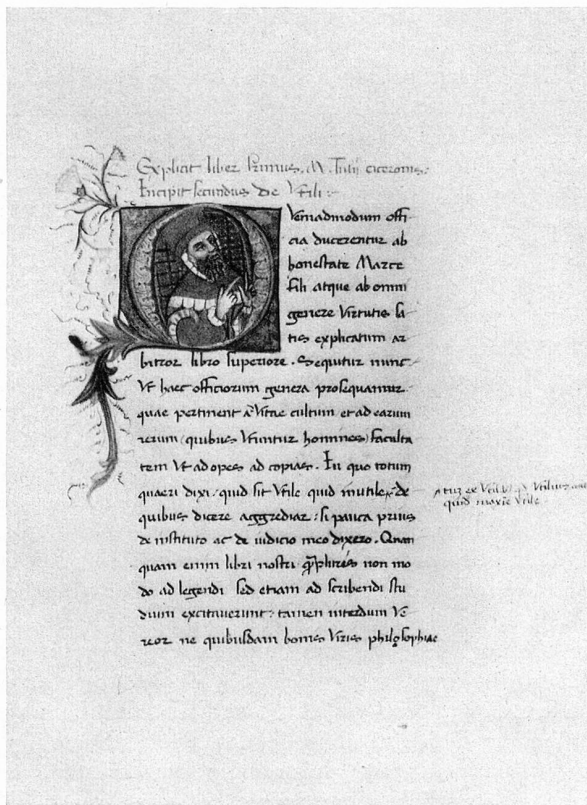 Explicit liber Primus. M. Tulij ciceronis.
Incipit secundus de Vtili.
Vemadmodum offi
cia ducerentur ab
honestate Marce
fili atque ab omni
genere Virtutis sa
tis explicatum ar
bitror libro superiore. Sequitur nunc
Vt haec officiorum genera prosequamur
quae pertinent ad Vitae cultum et ad earum
rerum quibus Vtuntur homines faculta
tem Vt ad opes ad copias. In quo totum
quaeri dixi quid sit Vtile quid inutile de
tum ex Vtilibus
quid maxie Vtile
quibus dicere aggrediar: si pauca prius
de instituto ac de iudicio meo dixero. Quan
quam enim libri nostri non mo
do ad legendi sed etiam ad scribendi stu
dium excitauerunt: tamen interdum Ve
reor ne quibusdam bonis Viris philosophiae